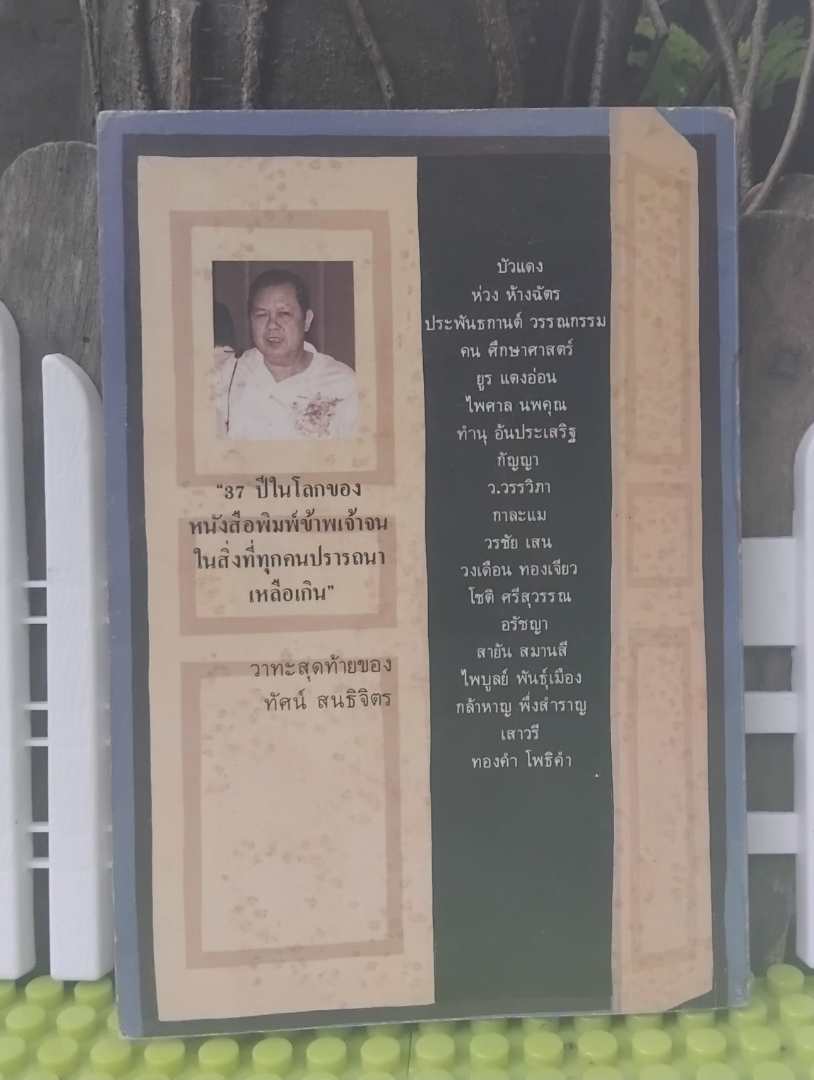 "37 ปีในโลกของ
หนังสือพิมพ์ข้าพเจ้าจน
ในสิ่งที่ทุกคนปรารถนา
เหลือเกิน"
วาทะสุดท้ายของ
ทัศน์ สนธิจิตร
บัวแดง
ห่วง ห้างฉัตร
ประพันธกานต์ วรรณกรรม
คน ศึกษาศาสตร์
ยูร แตงอ่อน
ไพศาล นพคุณ
ทำนุ อ้นประเสริฐ
กัญญา
ว.วรรวิภา
กาละแม
วรชัย เสน
วงเดือน ทองเจียว
โชติ ศรีสุวรรณ
อรัชญา
สายัน สมานสี
ไพบูลย์ พันธุ์เมือง
กล้าหาญ พึ่งสำราญ
เสาวรี
ทองคำ โพธิคำ